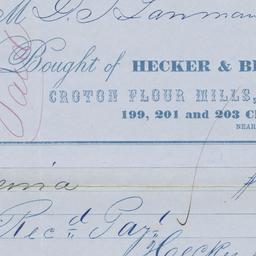 M D. T. Lanman
Bought of HECKER & B
CROTON FLOUR MILLS,
199, 201 and 203 C
NEAR
Rec'd Pay't
Hecke